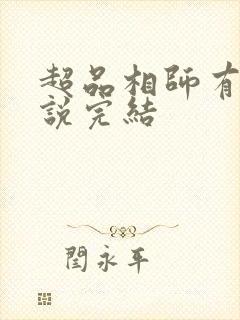 超品相师有
說完結
閆永平